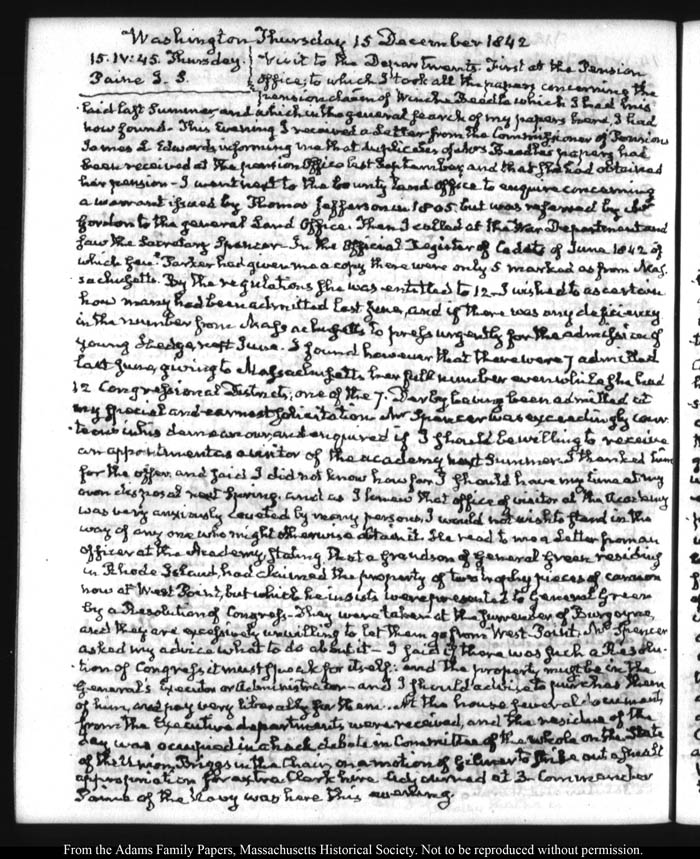 Washington Thursday 15 December 1842
15. IV: 45. Thursday. Visit to the Departments. First at the Pension
Paine T. S. Office; to which I took all the papers concerning the
pension claim of Beadle which I had
laid last Summer, and which in the general search of my papers here, I had
now found. This Evening I received a Letter from the Commissioner of Pensions
James L Edwards informing me that duplicates of Mrs Beadle's papers had
been received at the pension Office last September, and that she had obtained
her pension – I went next to the bounty Land office to enquire concerning
a warrant issued by Thomas Jefferson in 1805. but was referred by Mr
Gordon to the general Land Office. Then I called at the War Department and
saw the Secretary Spencer – In the Official Register of Cadets of June 1842 of
which Gen.l Parker had given me a copy there were only 5 marked as from Mas-
sachusetts. By the regulations she was entitled to 12 – I wished to ascertain
how many had been admitted last June, and if there was any deficiency
in the number from Massachusetts to press urgently for the admission of
young next June. I found however that there were 7 admitted
last June, giving to Massachusetts her full number even while she had
12 Congressional Districts; one of the 7. Derby having been admitted at
my special and earnest solicitation. Mr Spencer was exceedingly cour-
teous in his demeanour, and enquired if I should be willing to receive
an appointment as a visitor of the academy next Summer. I thanked him
for the offer, and said I did not know how far I should have my time at my
own disposal next Spring, and as I knew that office of visitor at the Academy
was very anxiously coveted by many persons, I would not wish to stand in the
way of any one who might otherwise obtain it. He read to me a Letter from an
officer at the Academy, stating that a Grandson of General Green residing
in Rhode Island, had claimed the property of two trophy pieces of cannon
now at West Point, but which he insists were presented to General Green
by a Resolution of Congress – They were taken at the surrender of Burgoyne,
and they are excessively unwilling to let them go from West-Point. Mr Spencer
asked my advice what to do about it – I said if there was such a Resolu-
tion of Congress it must speak for itself: and the property must be in the
General's Executor or Administrator – and I should advise to purchase them
of him, and pay very liberally for them. At the house several documents
from the Executive departments were received, and the residue of the
day was occupied in a hack debate in Committee of the whole on the State
of the Union, Briggs in the Chair, on a motion of Gilmer to strike out a
appropriation for extra Clark hire. Adjourned at 3. Commander
of the Navy was here this evening.
From the Adams Family Papers, Massachusetts Historical Society. Not to be reproduced without permission.